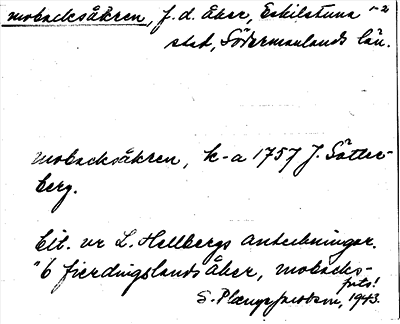 mobacksåkren, f.d. åker, Eskilstuna
stad, Södermanlands län.
mobacksåkren, k-a 1757 J. Sätter-
berg.
Cit. ur L. Hellbergs anteckningar.
"6 fierdingslands åker, mobacks-
S. 1943.